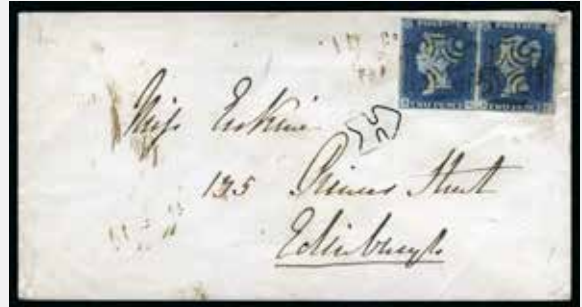 POSTAGE POSTAGE
TWO PENCE TWO PENCE
Miss Erskine
135 Princes Street
Edinburgh